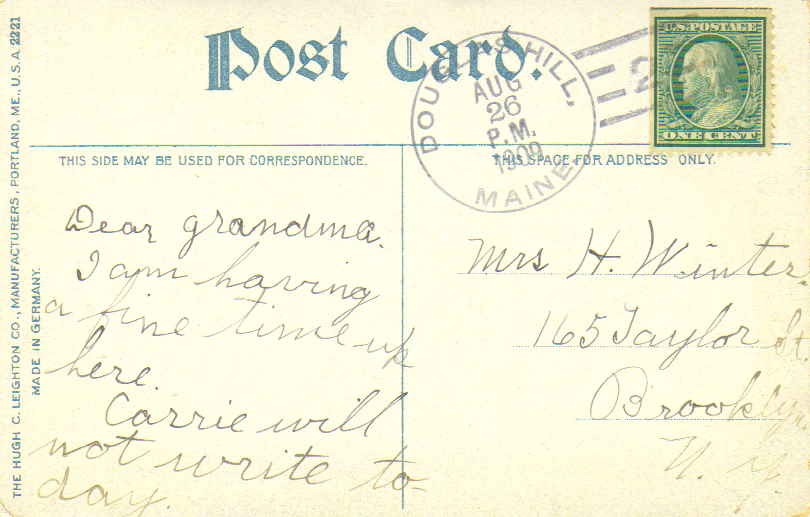 Post Card.
U.S.POSTAGE
ONE CENT
DOUGLAS HILL,
AUG
26
P.M.
1909
MAINE
THIS SIDE MAY BE USED FOR CORRESPONDENCE.
THIS SPACE FOR ADDRESS ONLY.
Dear grandma.
I am having
a fine time up
here.
Carrie will
not write to-
day.
Mrs H. Winter.
165 Taylor St.
Brooklyn
N. Y.
THE HUGH C. LEIGHTON CO., MANUFACTURERS, PORTLAND, ME., U.S.A. 2221
MADE IN GERMANY.